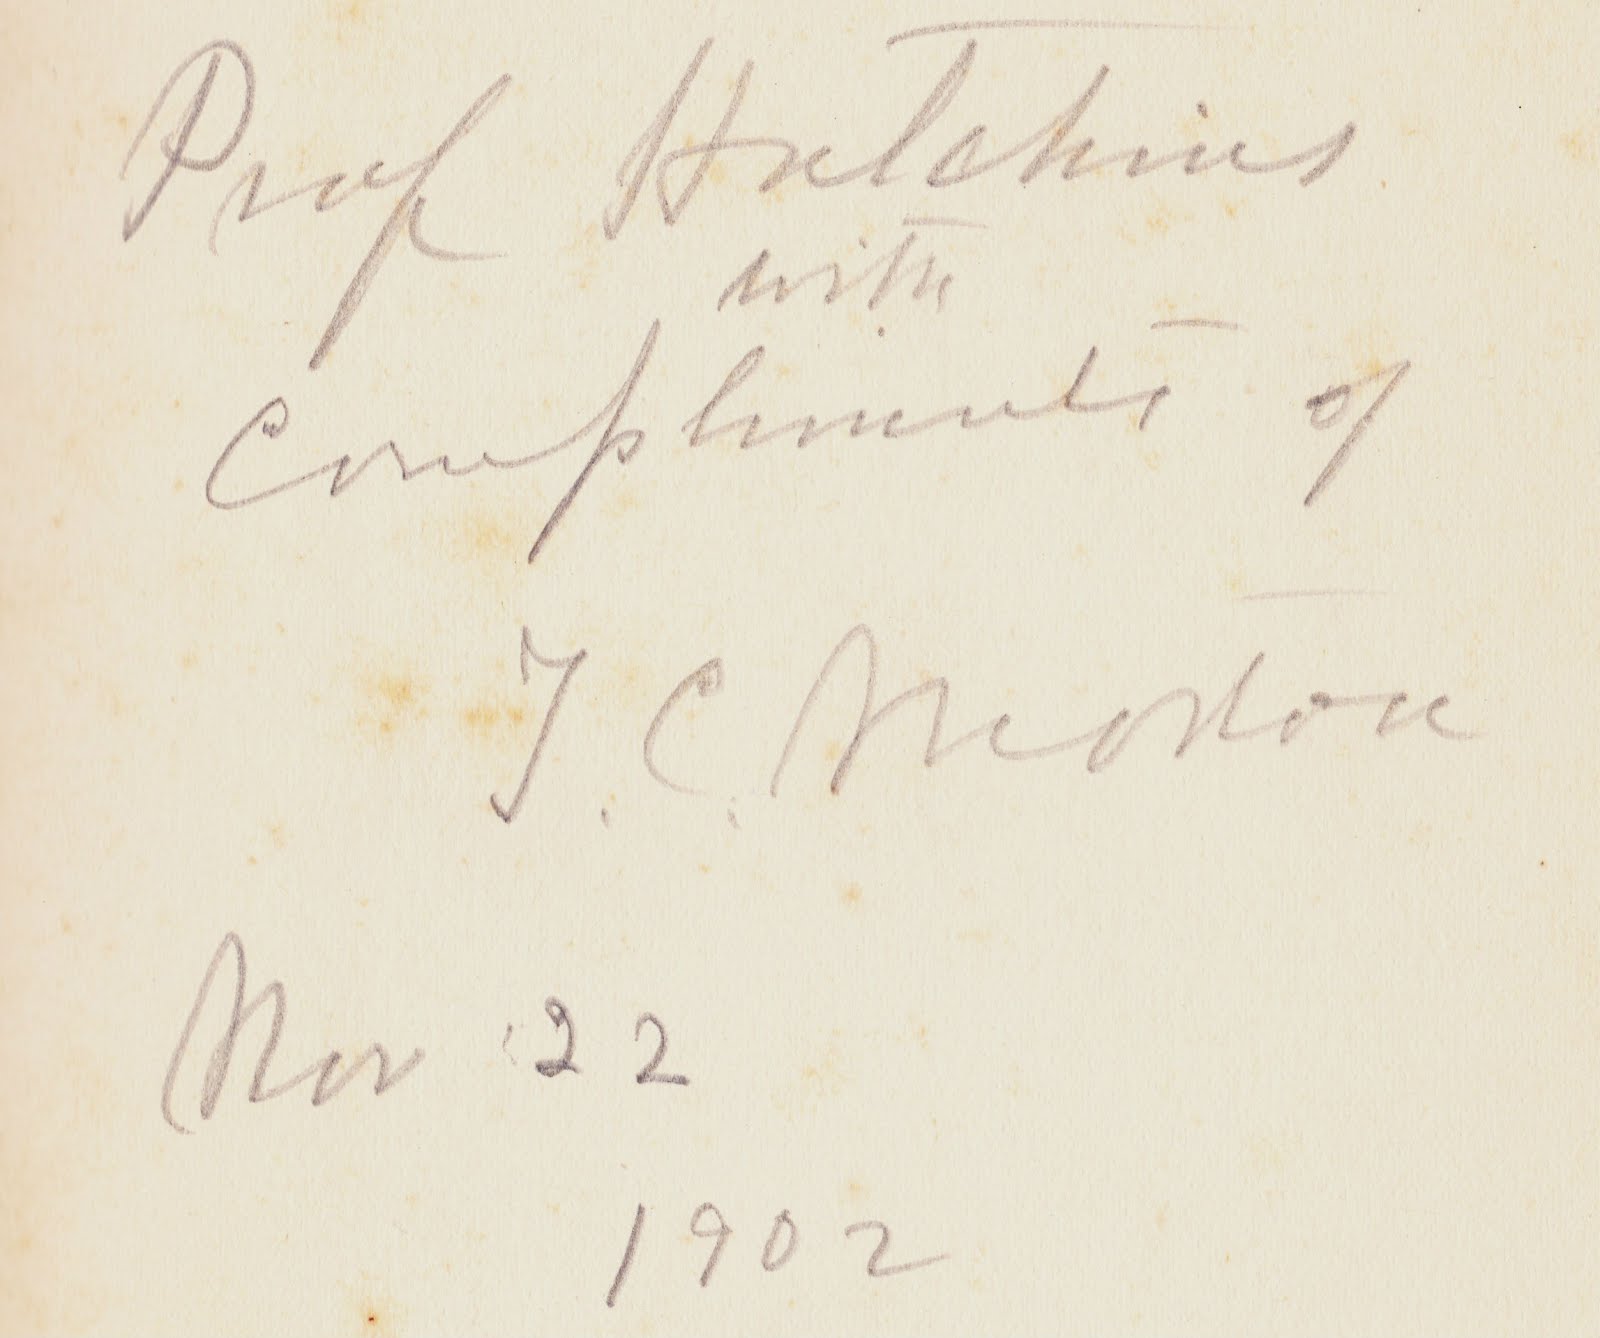 Prof Hutchins
with
compliments of
T. C. Morton
Nov 22
1902